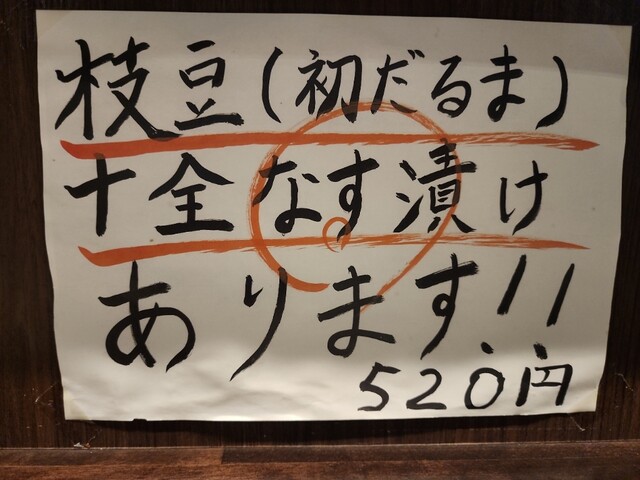 枝豆(初だるま)
十全なす漬け
あります!!
520円